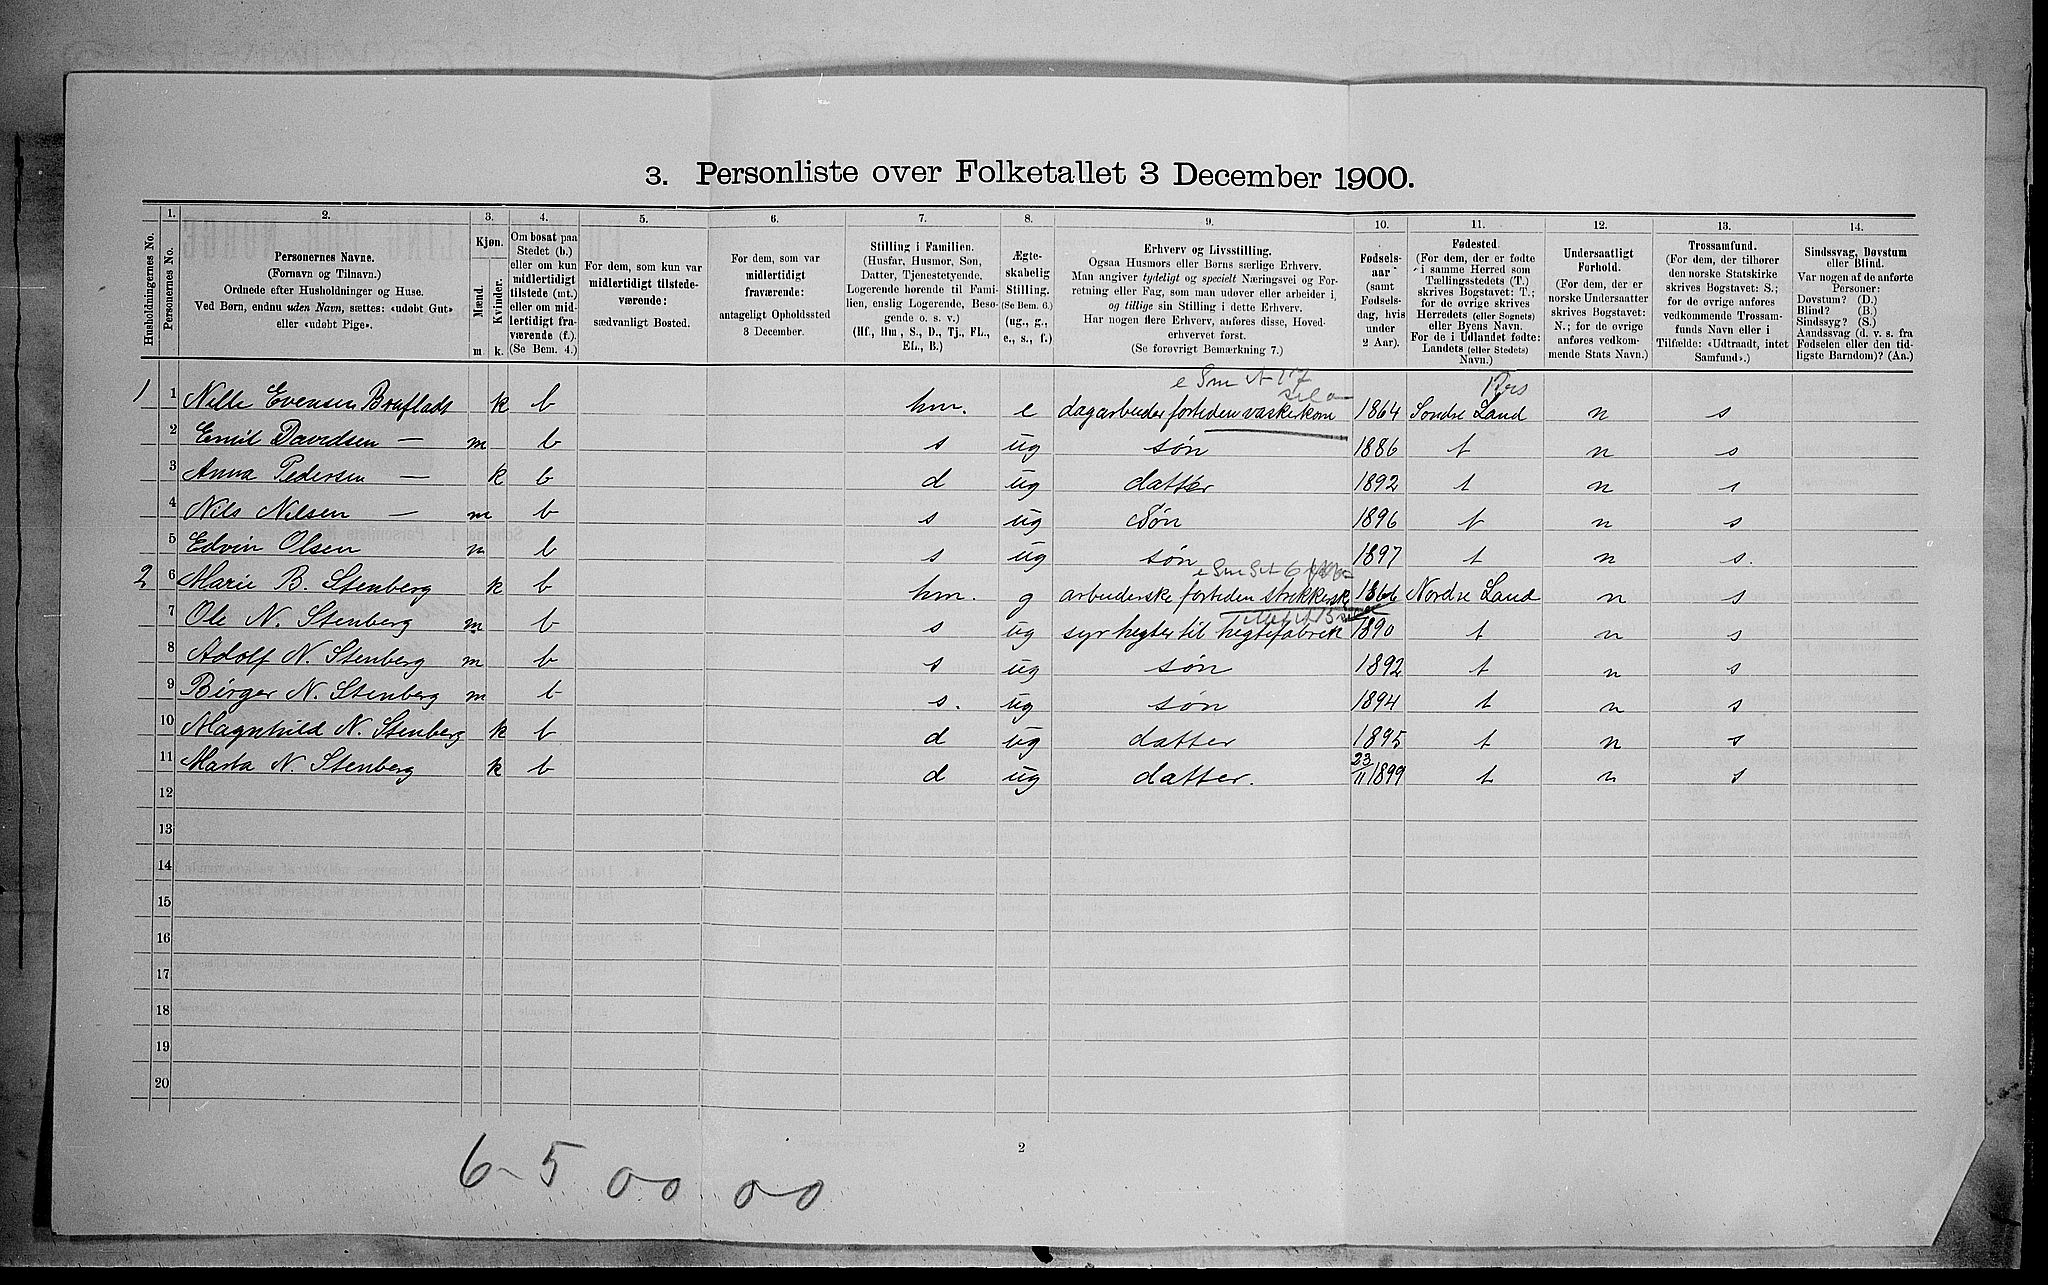 3. Personliste over Folketallet 3 December 1900.
1. 2. 3. 4. 5. 6. 7. 8. 9. 10. 11. 12. 13. 14.
Husholdningernes No.
Personernes No.
Personernes Navne.
(Fornavn og Tilnavn.)
Ordnede efter Husholdninger og Huse.
Ved Børn, endnu uden Navn, sættes: «udøbt Gut»
eller «udøbt Pige».
Kjøn.
Mænd.
Kvinder.
m k
Om bosat paa
Stedet (b.)
eller om kun
midlertidigt
tilstede (mt.)
eller om mid-
lertidigt fra-
værende (f.).
(Se Bem. 4.)
For dem, som kun var
midlertidigt tilstede-
værende:
sædvanligt Bosted.
For dem, som var
midlertidigt
fraværende:
antageligt Opholdssted
3 December.
Stilling i Familien.
(Husfar, Husmor, Søn,
Datter, Tjenestetyende,
Logerende hørende til Fami-
lien, enslig Logerende, Besø-
gende o. s. v.)
(Hf., Hm., S., D., Tj., FL.,
EL., B.)
Ægte-
skabelig
Stilling.
(Se Bem. 6.)
(ug., g.,
e., s., f.)
Erhverv og Livsstilling.
Ogsaa Husmors eller Børns særlige Erhverv.
Man angiver tydeligt og specielt Næringsvei og For-
retning eller Fag, som man udøver eller arbeider i,
og tillige sin Stilling i dette Erhverv.
Har nogen flere Erhverv, anføres disse, Hoved-
erhvervet først.
(Se forøvrigt Bemærkning 7.)
Fødsels-
aar
(samt
Fødsels-
dag, hvis
under
2 Aar).
Fødested.
(For dem, der er fødte
i samme Herred som
Tællingsstedets (T.)
skrives Bogstavet: T.;
for de øvrige skrives
Herredets (eller Sognets)
eller Byens Navn.
For de i Udlandet fødte:
Landets (eller Stedets)
Navn.)
Undersaatligt
Forhold.
(For dem, der er
norske Undersaatter
skrives Bogstavet:
N.; for de øvrige
anføres vedkom-
mende Stats Navn.)
Trossamfund.
(For dem, der tilhører
den norske Statskirke
skrives Bogstavet: S.;
for de øvrige anføres
vedkommende Trossam-
funds Navn eller i
Tilfælde: «Udtraadt, intet
Samfund».)
Sindssvag, Døvstum
eller Blind.
Var nogen af de anførte
Personer:
Døvstum? (D.)
Blind? (B.)
Sindssyg? (S.)
Aandssvag (d. v. s. fra
Fødselen eller den tid-
ligste Barndom)? (Aa.)
1 1 Nille Evensen Brufladt k b hm. e dagarbeider fortiden vaskekone 1864 Søndre Land n s
2 Emil Davidsen — m b s ug søn 1886 t n s
3 Anna Pedersen — k b d ug datter 1892 t n s
4 Nils Nilsen — m b s ug Søn 1896 t n s
5 Edvin Olsen m b s ug søn 1897 t n s.
2 6 Marie B. Stenberg k b hm. g arbeiderske fortiden strikkersk 1866 Nordre Land n s
7 Ole N. Stenberg m b s ug syr hegter til hegtefabrik 1890 t n s
8 Adolf N. Stenberg m b s ug søn 1892 t n s
9 Birger N. Stenberg m b s. ug søn 1894 t n s
10 Magnhild N. Stenberg k b d ug datter 1895 t n s
11 Marta N. Stenberg k b d ug datter. 23/11 1899 t n s
12
13
14
15
16
17
18
19
20
2
6-5 00 00